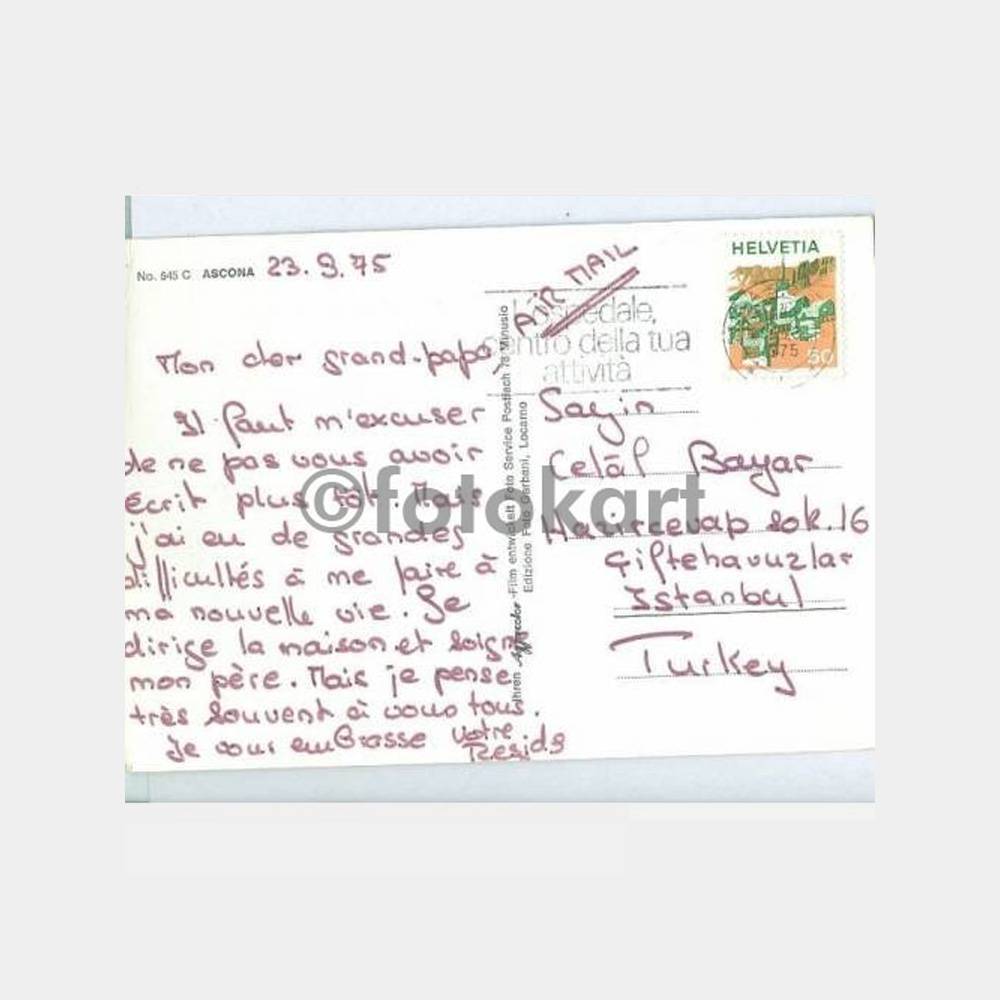 No. 545 C ASCONA 23.9.75
AIR MAIL
HELVETIA
50
L'ospedale,
centro della tua
attività
Mon cher grand-papa,
Il faut m'excuser
de ne pas vous avoir
écrit plus tôt. Mais
j'ai eu de grandes
difficultés à me faire à
ma nouvelle vie. Je
dirige la maison et soigne
mon père. Mais je pense
très souvent à vous tous.
Je vous embrasse votre
Ihren Agfacolor-Film entwickelt Foto Service Postfach 78 Minusio
Edizione Foto Garbani, Locarno
Sayin
Celâl Bayar
Hazircevap sok. 16
Çiftehavuzlar
Istanbul
Turkey
©fotokart